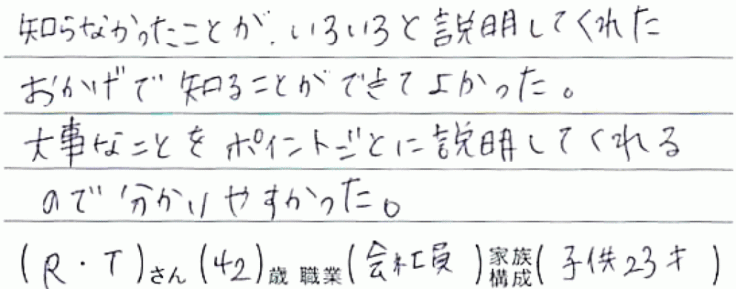 知らなかったことが、いろいろと説明してくれた
おかげで知ることができてよかった。
大事なことをポイントごとに説明してくれる
ので分かりやすかった。
(R・T)さん(42)歳 職業(会社員)家族構成(子供23才)